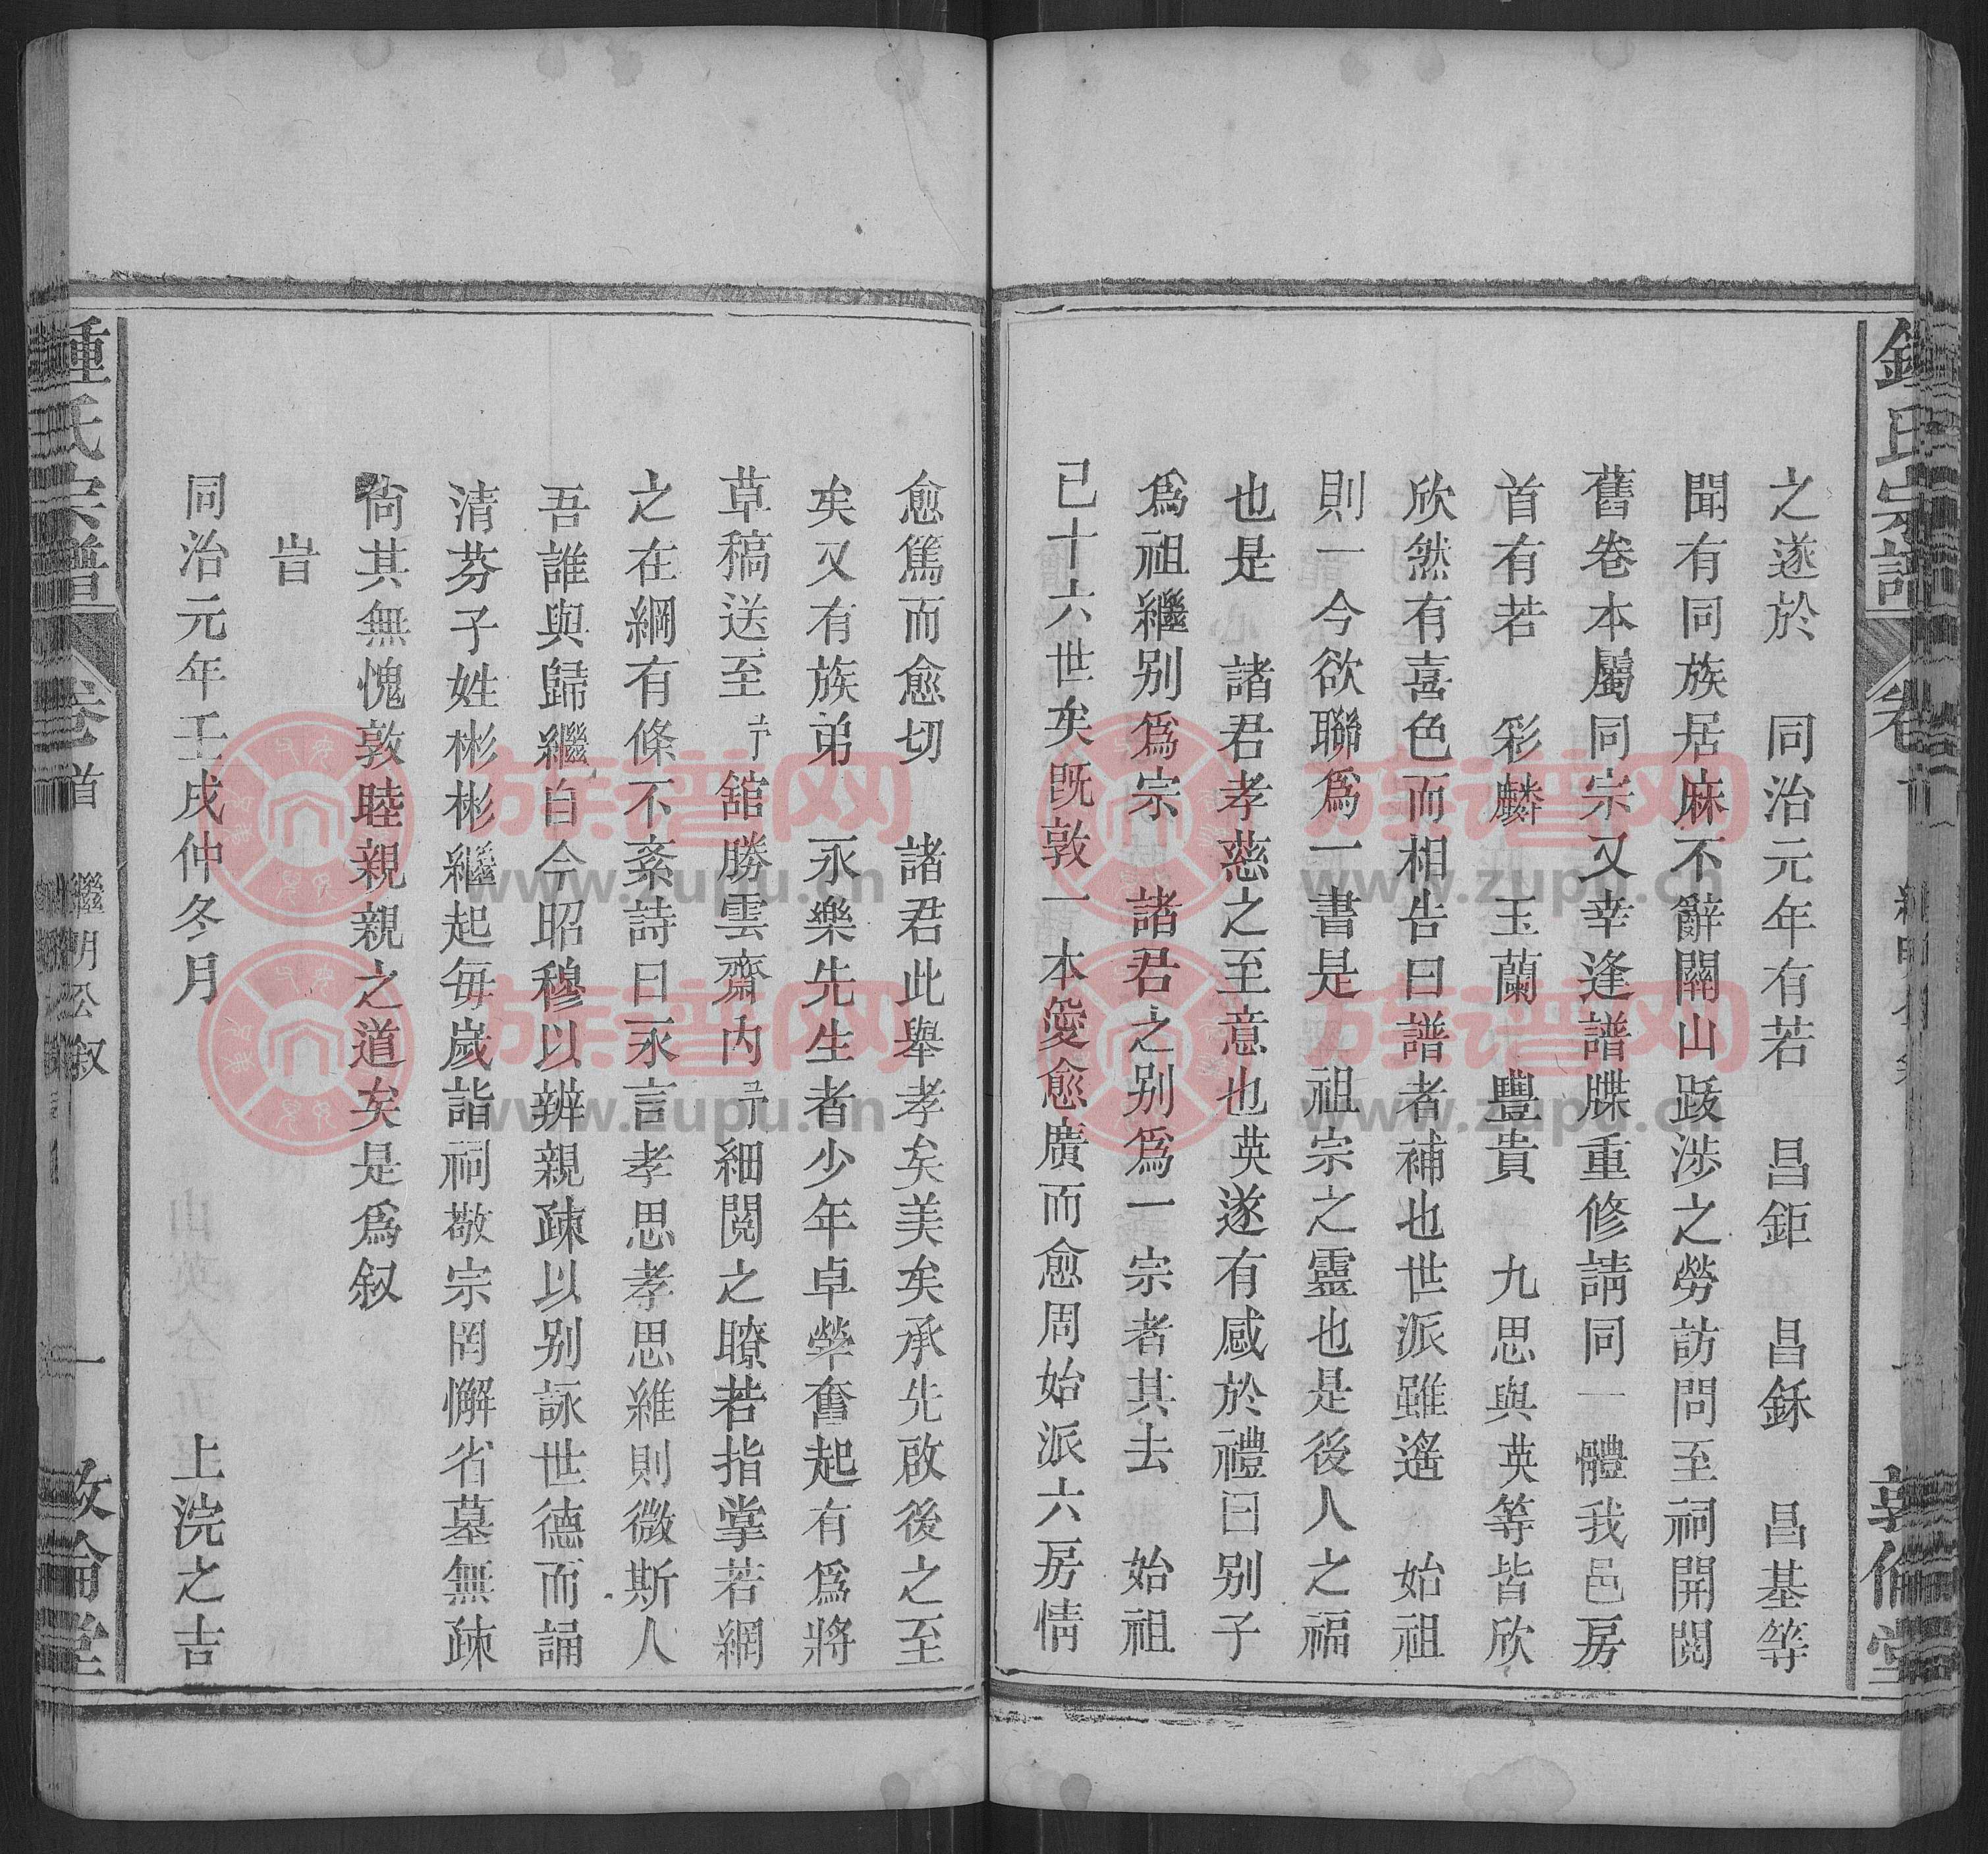 鍾氏宗譜 卷首 繼明公叙 敦倫堂
之遂於 同治元年有若 昌鉅 昌鉌 昌基等
聞有同族居麻不辭關山跋涉之勞訪問至祠開閱
舊卷本屬同宗又幸逢譜牒重修請同一體我邑房
首有若 彩麟 玉蘭 豐貴 九思與英等皆欣
欣然有喜色而相告曰譜者補也世派雖遙 始祖
則一今欲聯爲一書是 祖宗之靈也是後人之福
也是 諸君孝慈之至意也英遂有感於禮曰别子
爲祖繼别爲宗 諸君之别爲一宗者其去 始祖
已十六世矣既敦一本愛愈廣而愈周始派六房情
愈篤而愈切 諸君此舉孝矣美矣承先啟後之至
矣又有族弟 永樂先生者少年卓犖奮起有爲將
草稿送至于舘勝雲齋内于細閱之瞭若指掌若網
之在綱有條不紊詩曰永言孝思孝思維則微斯人
吾誰與歸繼自今昭穆以辨親疎以别詠世德而誦
清芬子姓彬彬繼起每歲詣祠敬宗罔懈省墓無疎
尙其無愧敦睦親親之道矣是爲叙
旹
同治元年壬戌仲冬月 上浣之吉
鍾氏宗譜 卷首 繼明公叙 一 敦倫堂
族谱网
www.zupu.cn
族谱网
www.zupu.cn
族谱网
www.zupu.cn
族谱网
www.zupu.cn